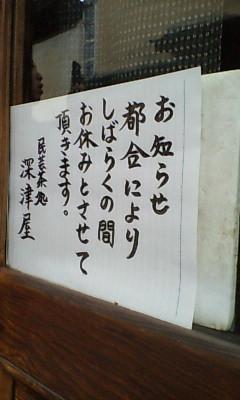 お知らせ
都合により
しばらくの間
お休みとさせて
頂きます。
民芸茶処
深津屋